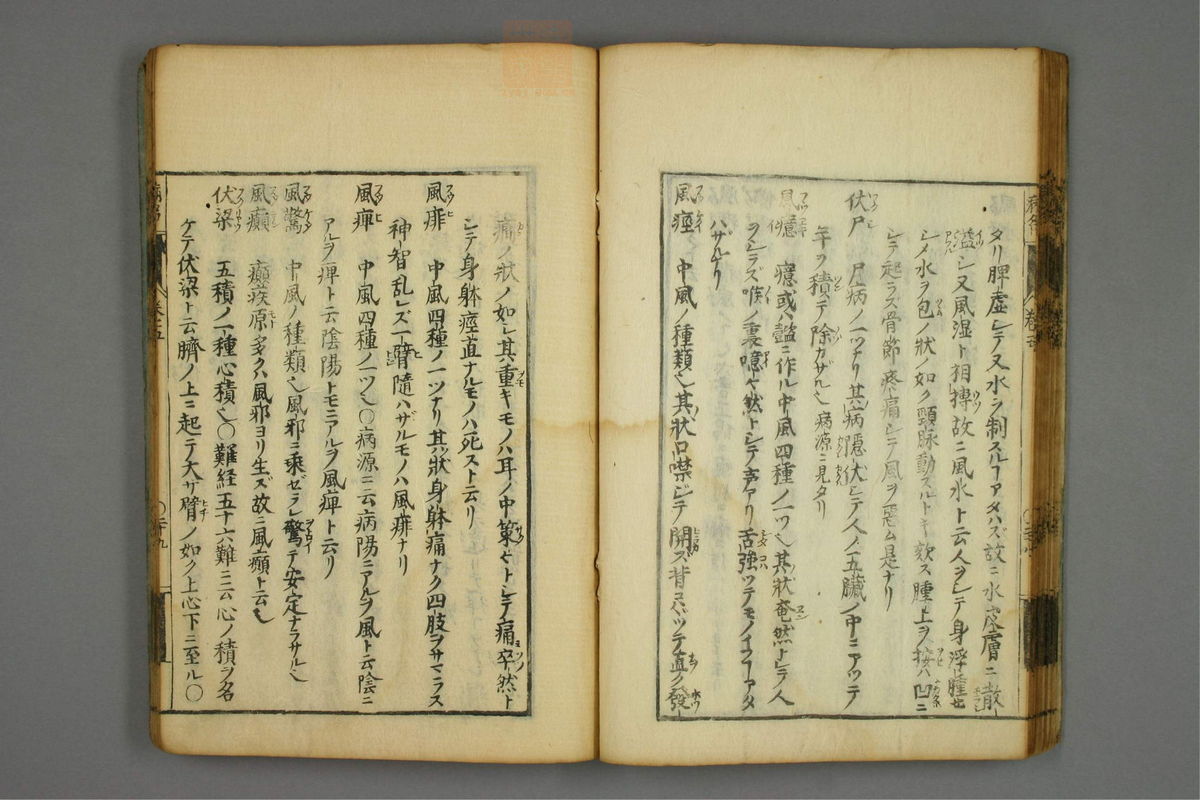 タリ脾虚シテ又水ヲ制スルヿアタハズ故ニ水皮膚ニ散
溢シ又風湿ト相搏故ニ風水ト云人ヲシテ身浮腫セ
シメ水ヲ包ノ状ノ如ク頸脉動スルトキ欬ス腫上ヲ按ハ凹ニ
シテ起ラズ骨節疼痛シテ風ヲ惡ム是ナリ
伏尸 尸病ノ一ツナリ其病隱伏シテ人ノ五臓ノ中ニアツテ
年ヲ積テ除カザル也病源ニ見タリ
風癔 癔或ハ懿ニ作ル中風四種ノ一ツ也其状奄然トシテ人
ヲシラズ喉ノ裏噫々然トシテ声アリ舌強ツテモノイフヿアタ
ハザルナリ
風痙 中風ノ種類也其状口噤シテ開ズ背コハツテ直ク發
痛ノ状ノ如シ其重キモノハ耳ノ中策々トシテ痛卒然ト
シテ身躰痙直ナルモノハ死スト云リ
風痱 中風四種ノ一ツナリ其状身躰痛ナク四肢ヲサマラス
神智乱レズ一臂隨ハザルモノハ風痱ナリ
風痺 中風四種ノ一ツ也〇病源ニ云病陽ニアルヲ風ト云陰ニ
アルヲ痺ト云陰陽トモニアルヲ風痺ト云リ
風驚 中風ノ種類也風邪ニ乘ゼラレ驚テ安定ナラサル也
風癲 癲疾原多クハ風邪ヨリ生ズ故ニ風癲ト云也
伏梁 五積ノ一種心積也〇難経五十六難ニ云心ノ積ヲ名
ケテ伏梁ト云臍ノ上ニ起テ大サ臂ノ如ク上心下ニ至ル〇